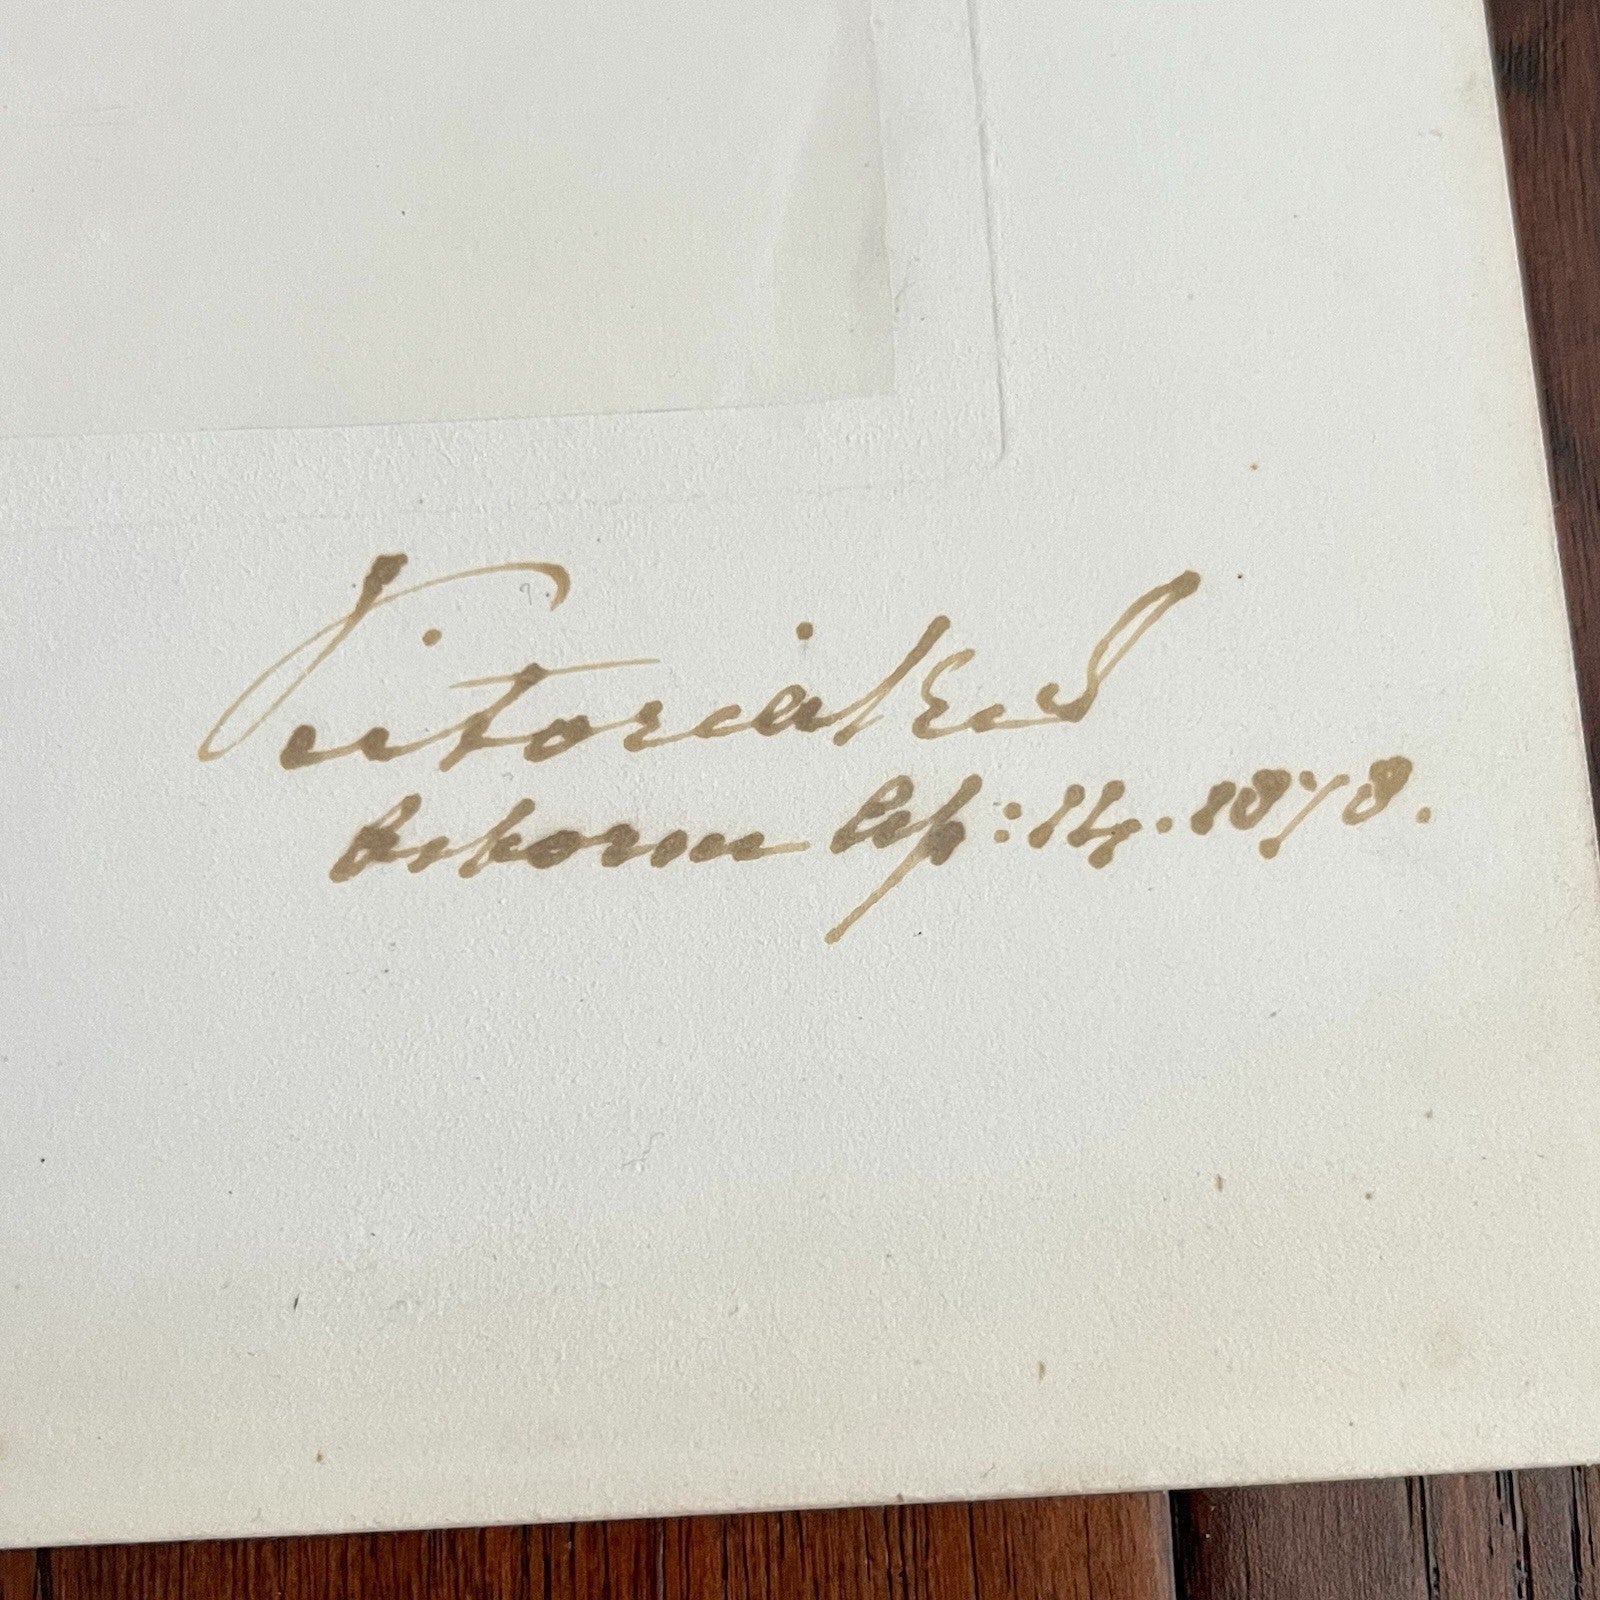 Victoria R & I
Osborne Ap: 14. 1878.